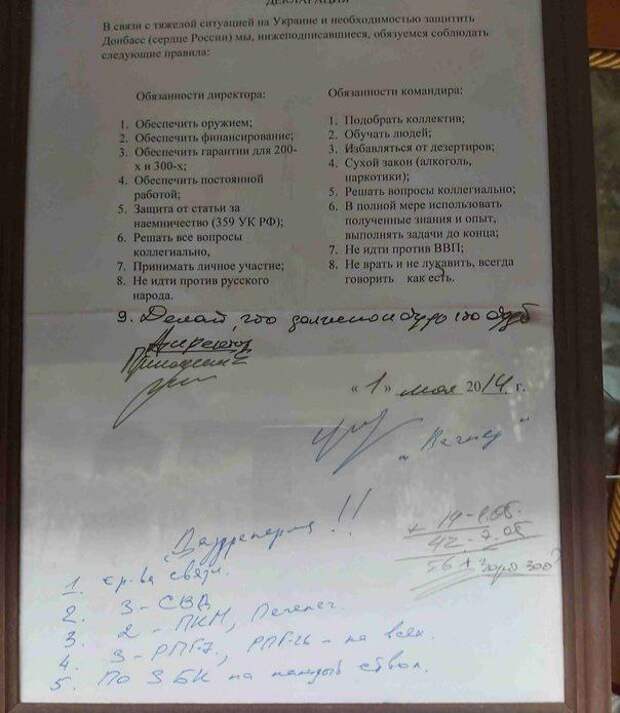 ДЕКЛАРАЦИЯ
В связи с тяжелой ситуацией на Украине и необходимостью защитить
Донбасс (сердце России) мы, нижеподписавшиеся, обязуемся соблюдать
следующие правила:
Обязанности директора:
1. Обеспечить оружием;
2. Обеспечить финансирование;
3. Обеспечить гарантии для 200-
х и 300-х;
4. Обеспечить постоянной
работой;
5. Защита от статьи за
наемничество (359 УК РФ);
6. Решать все вопросы
коллегиально,
7. Принимать личное участие;
8. Не идти против русского
народа.
Обязанности командира:
1. Подобрать коллектив;
2. Обучать людей;
3. Избавляться от дезертиров;
4. Сухой закон (алкоголь,
наркотики);
5. Решать вопросы коллегиально;
6. В полной мере использовать
полученные знания и опыт,
выполнять задачи до конца;
7. Не идти против ВВП;
8. Не врать и не лукавить, всегда
говорить как есть.
9. Делай, что должно и будь что будет
Директор
Пригожин
« 1 » мая 2014 г.
„Вагнер"
!!
+ 19 - 1.05.
42 - 2.05
561
300?
1. ср-ва связи.
2. 3 - СВД
3. 2 - ПКМ, Печенег.
4. 3 - РПГ-7, РПГ-26 - на всех.
5. По 3 БК на каждый ствол.